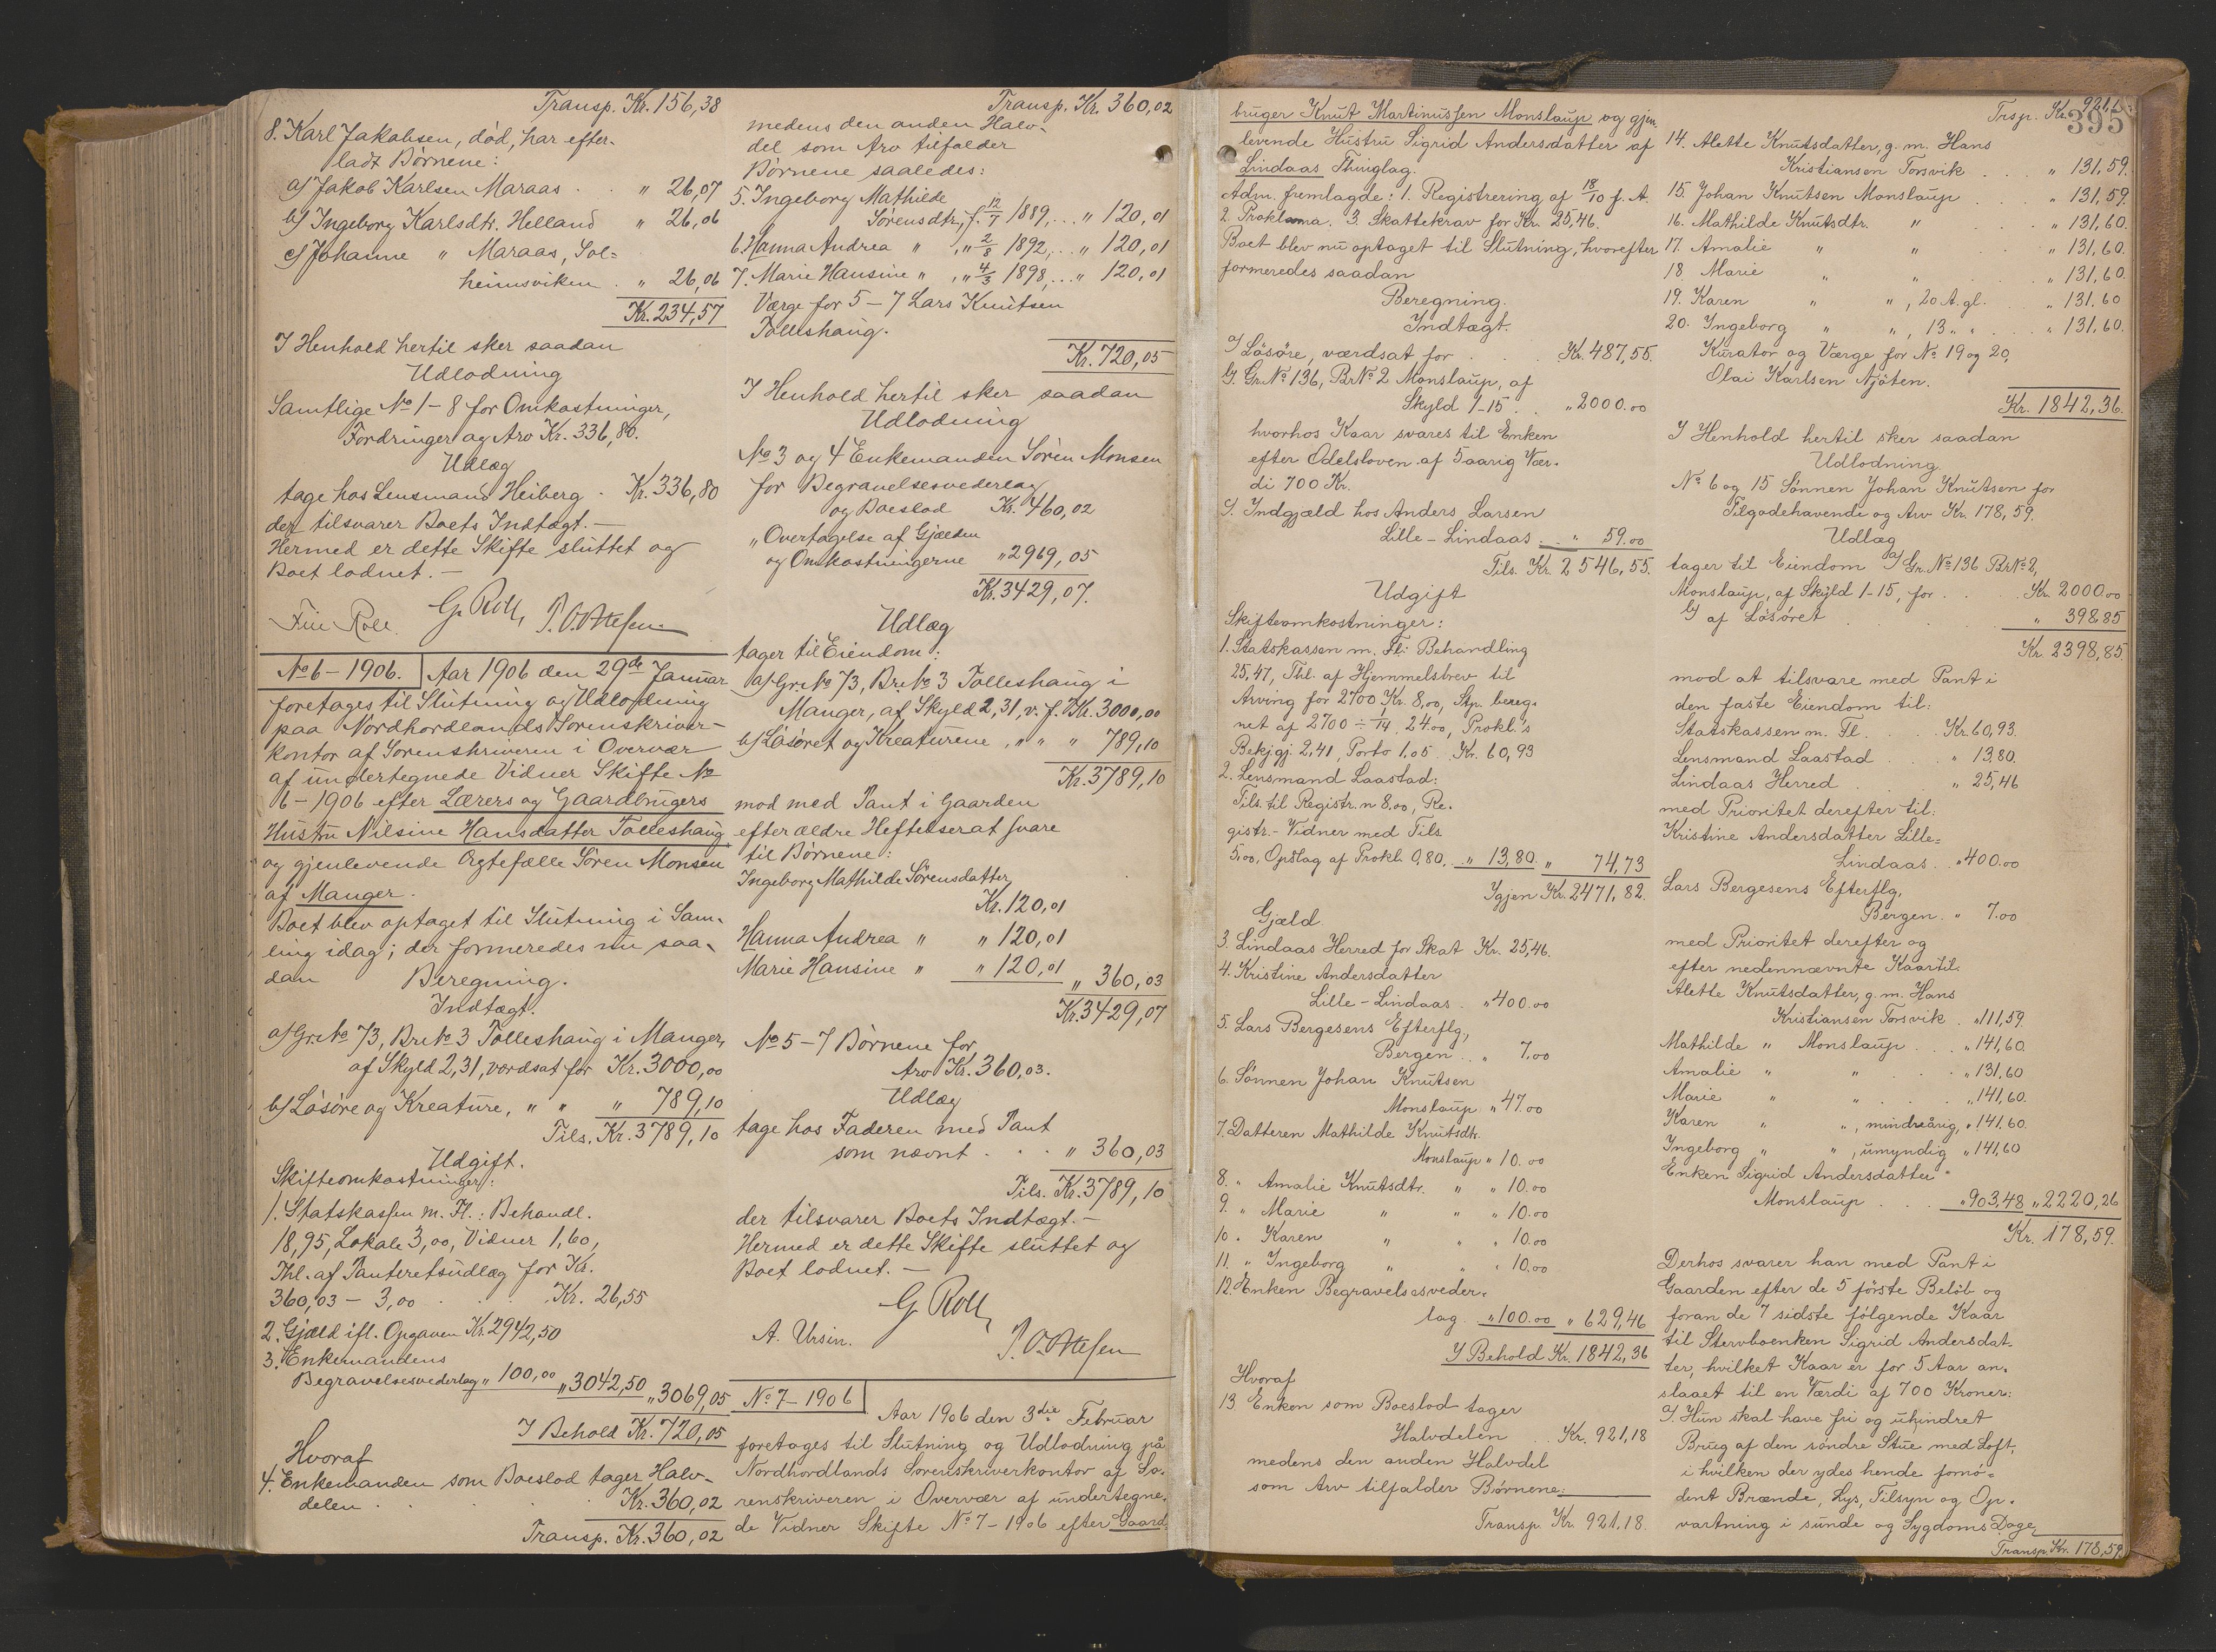 Transp. Kr. 156,38
8. Karl Jakobsen, død, har efter-
ladt Børnene:
a) Jakob Karlsen Maraas . . " 26,07
b) Ingeborg Karlsdtr. Helland " 26,06
c) Johanne " Maraas, Sol-
heimsviken . " 26,06
Kr. 234,57
I Henhold hertil sker saadan
Udlodning
Samtlige No 1-8 for Omkostninger,
Fordringer og Arv Kr. 336,80.
Udlæg
tage hos Lensmand Heiberg . Kr. 336,80
der tilsvarer Boets Indtægt. —
Hermed er dette Skifte sluttet og
Boet lodnet. —
G. Roll
P. Ottesen
No 6 - 1906. Aar 1906 den 29de Januar
foretages til Slutning og Udlodning
paa Nordhordlands Sorenskriver-
kontor af Sorenskriveren i Overvær
af undertegnede Vidner Skifte No
6 - 1906 efter Lærers og Gaardbrugers
Hustru Nilsine Hansdatter Tolleshaug
og gjenlevende Ægtefælle Sören Monsen
af Manger.
Boet blev optaget til Slutning i Sam-
ling idag; der formeredes nu saa-
dan Beregning.
Indtægt.
a) Gr. No 73, Br. No 3 Tolleshaug i Manger,
af Skyld 2,31, værdsat for Kr. 3000,00
b) Løsøre og Kreature, " " " 789,10
Tils. Kr. 3789,10
Udgift.
Skifteomkostninger:
1. Statskassen m. Fl.: Behandl.
18,95, Lokale 3,00, Vidner 1,60,
Thl. af Panteretsudlæg for Kr.
360,03 - 3,00 . . . Kr. 26,55
2. Gjæld ifl. Opgaven Kr. 2942,50
3. Enkemandens
Begravelsesvederlag " 100,00 " 3042,50 " 3069,05
I Behold Kr. 720,05
Hvoraf
4. Enkemanden som Boeslod tager Halv-
delen . . . Kr. 360,02
Transp. Kr. 360,02
Transp. Kr. 360,02
medens den anden Halv-
del som Arv tilfalder
Børnene saaledes:
5. Ingeborg Mathilde
Sørensdtr, f. 12/1 1889,... " 120,01
6. Hanna Andrea " , " 2/8 1892,... " 120,01
7. Marie Hansine " , " 4/3 1898,... " 120,01
Værge for 5-7 Lars Knutsen
Tolleshaug.
Kr. 720,05
I Henhold hertil sker saadan
Udlodning
No 3 og 4 Enkemanden Sören Monsen
for Begravelsesvederlag
og Boeslod Kr. 460,02
" Overtagelse af Gjælden
og Omkostningerne " 2969,05
Kr. 3429,07.
Udlæg
tager til Eiendom:
a) Gr. No 73, Br. No 3 Tolleshaug i
Manger, af Skyld 2,31, v. f. Kr. 3000,00
b) Løsøret og Kreaturene, " " " 789,10
Kr. 3789,10
mod med Pant i Gaarden
efter ældre Heftelser at svare
til Børnene:
Ingeborg Mathilde Sørensdatter
Kr. 120,01
Hanna Andrea " " 120,01
Marie Hansine " " 120,01
" 360,03
Kr. 3429,07
No 5-7 Børnene for
Arv Kr. 360,03.
Udlæg
tage hos Faderen med Pant
som nævnt . . . " 360,03
Tils. Kr. 3789,10
der tilsvarer Boets Indtægt. —
Hermed er dette Skifte sluttet og
Boet lodnet. —
G. Roll
A. Ursin.
P. Ottesen
No 7 - 1906 Aar 1906 den 3die Februar
foretages til Slutning og Udlodning på
Nordhordlands Sorenskriverkontor af So-
renskriveren i Overvær af undertegne-
de Vidner Skifte No 7 - 1906 efter Gaard-
395
bruger Knut Martinussen Monslaup og gjen-
levende Hustru Sigrid Andersdatter af
Lindaas Thinglag.
Adm. fremlagde: 1. Registrering af 18/10 f. A.
2. Proklama. 3. Skattekrav for Kr. 25,46.
Boet blev nu optaget til Slutning, hvorefter
formeredes saadan
Beregning.
Indtægt.
a) Løsøre, værdsat for . . . Kr. 487,55.
b). Gr. No 136, Br. No 2 Monslaup, af
Skyld 1-15 . . " 2000.00
hvorhos Kaar svares til Enken
efter Odelsloven af 5aarig Vær-
di 700 Kr.
c). Indgjæld hos Anders Larsen
Lille-Lindaas . . " 59.00
Tils. Kr. 2546,55.
Udgift
Skifteomkostninger:
1. Statskassen m. Fl: Behandling
25,47, Thl. af Hjemmelsbrev til
Arving for 2700 Kr. 8,00, Stp. bereg-
net af 2700 ÷ 1/14 24.00, Prokl.'s
Bekjgj. 2,41, Porto 1.05 Kr. 60,93
2. Lensmand Laastad:
Tils. til Registr.n 8.00, Re-
gistr.-Vidner med Tils
5,00, Opslag af Prokl. 0,80. " 13,80. " 74,73
Igjen Kr. 2471,82.
Gjæld
3. Lindaas Herred for Skat Kr. 25,46.
4. Kristine Andersdatter
Lille-Lindaas . " 400.00
5. Lars Bergesens Efterflg,
Bergen . . " 7.00
6. Sønnen Johan Knutsen
Monslaup " 47.00
7. Datteren Mathilde Knutsdtr.
Monslaup " 10.00
8. " Amalie Knutsdtr. " " 10.00
9. " Marie " " " 10.00
10. " Karen " " " 10.00
11. " Ingeborg " " " 10.00
12. Enken Begravelsesveder-
lag " 100.00 " 629,46
I Behold Kr. 1842,36
Hvoraf
13 Enken som Boeslod tager
Halvdelen . . Kr. 921,18
medens den anden Halvdel
som Arv tilfalder Børnene:
Transp. Kr. 921,18.
Trsp. Kr. 921,18
14. Alette Knutsdatter, g. m. Hans
Kristiansen Torsvik . . . " 131,59.
15. Johan Knutsen Monslaup . . . " 131,59.
16. Mathilde Knutsdtr. " . . . " 131,60.
17. Amalie " " . . " 131,60.
18 Marie " " . . . " 131,60.
19. Karen " " , 20 A. gl. . . " 131.60
20. Ingeborg " " , 13 " " . . . " 131,60.
Kurator og Værge for No 19 og 20,
Olai Karlsen Njöten.
Kr. 1842,36.
I Henhold hertil sker saadan
Udlodning
No 6 og 15 Sønnen Johan Knutsen for
Tilgodehavende og Arv Kr. 178,59.
Udlæg
tager til Eiendom a) Gr. No 136 Br No 2,
Monslaup, af Skyld 1-15, for . . . Kr. 2000.00
b) af Løsøret . . . " 398.85
Kr. 2398,85.
mod at tilsvare med Pant i
den faste Eiendom til:
Statskassen m. Fl. . . . Kr. 60,93.
Lensmand Laastad . . . " 13,80.
Lindaas Herred . . . " 25,46
med Prioritet derefter til:
Kristine Andersdatter Lille-
Lindaas . " 400.00
Lars Bergesens Efterflg,
Bergen . " 7.00
med Prioritet derefter og
efter nedennævnte Kaar til:
Alette Knutsdatter, g. m. Hans
Kristiansen Torsvik . " 111,59.
Mathilde " Monslaup . . . " 141,60.
Amalie " " . . . " 131,60
Marie " " . . . " 141,60.
Karen " " , mindreårig, " 141,60.
Ingeborg " " , umyndig " 141,60
Enken Sigrid Andersdatter
Monslaup . . . " 903,48 " 2220,26
Kr. 178,59.
Derhos svarer han med Pant i
Gaarden efter de 5 første Beløb og
foran de 7 sidste følgende Kaar
til Stervboenken Sigrid Andersdat-
ter, hvilket Kaar er for 5 Aar an-
slaaet til en Værdi af 700 Kroner:
a). Hun skal have fri og uhindret
Brug af den søndre Stue med Loft,
i hvilken der ydes hende fornö-
dent Brænde, Lys, Tilsyn og Op-
vartning i sunde og Sygdoms Dage,
Transp. Kr. 178,59.